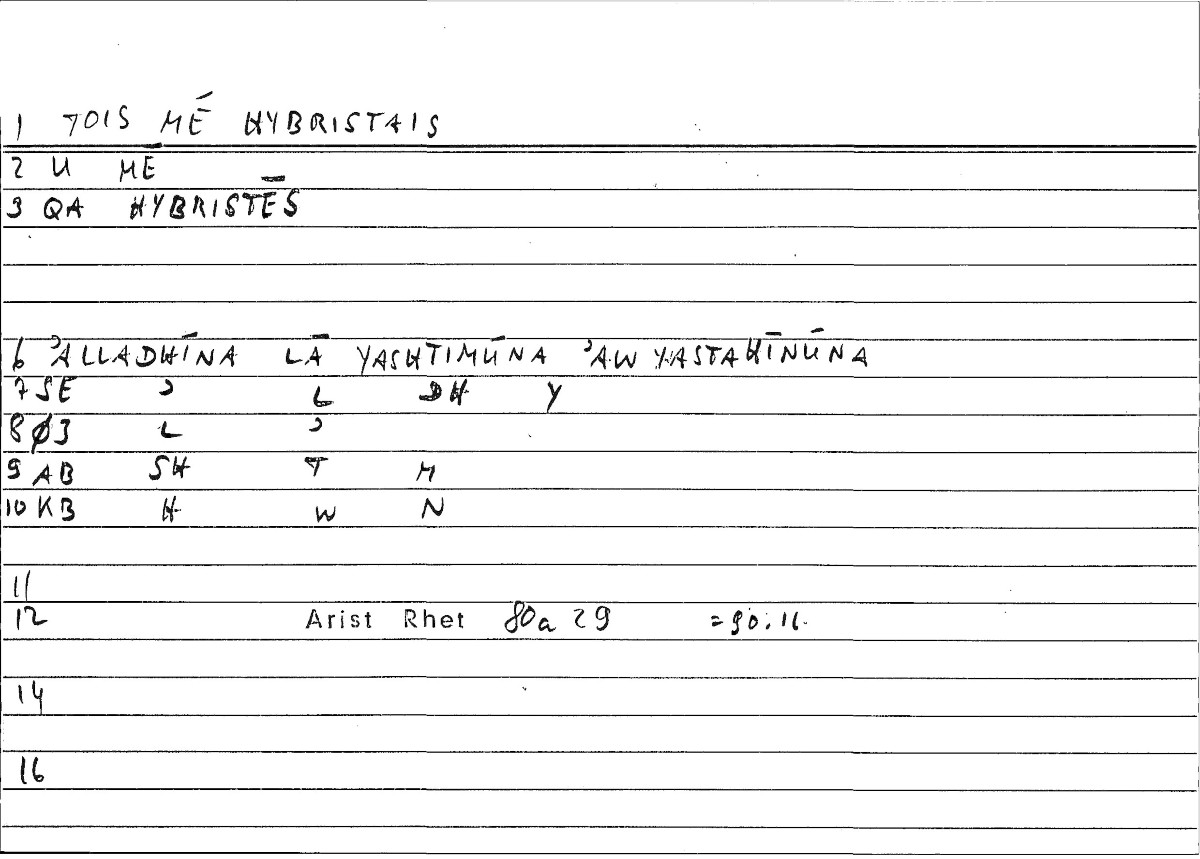 1 TOIS MḖ HYBRISTAIS
2 U MĒ
3 QA HYBRISTĒS
6 ʾALLADHĪNA LĀ YASHTIMŪNA ʾAW YASTAHĪNŪNA
7 SE ʾ L DH Y
8 Ø3 L ʾ
9 AB SH T M
10 KB H W N
11
12 Arist Rhet 80a 29 = 90.16.
14
16